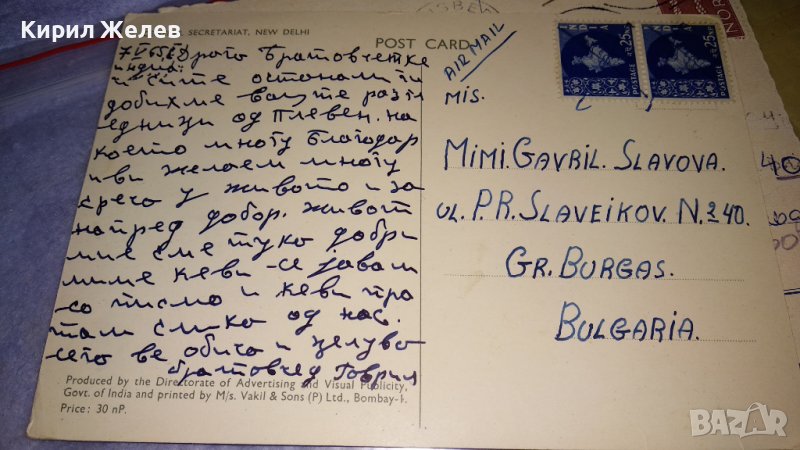 Кирил Желев
SECRETARIAT, NEW DELHI
POST CARD
AIR MAIL
INDIA
INDIA
25 nP.
25 nP.
POSTAGE
POSTAGE
7 V 65 г. Драго Братовчетке
индиа
и сите останали
добихме вашите разгл
едници од Плевен. на
което многу благодар
и ви желаем многу
среќа у живото и за
напред добор. живот
ние сме туко добри
миме ќеви се јавам
со писмо и ќеви пра
там слико од нас.
сето ве обичо и целуво
братовчед Говрил
MIS.
MIMI. GAVRIL. SLAVOVA.
UL. P.R. SLAVEIKOV. N. 240.
GR. BURGAS.
BULGARIA.
Produced by the Directorate of Advertising and Visual Publicity,
Govt. of India and printed by M/s. Vakil & Sons (P) Ltd., Bombay-1.
Price: 30 nP.
40
BAZAR